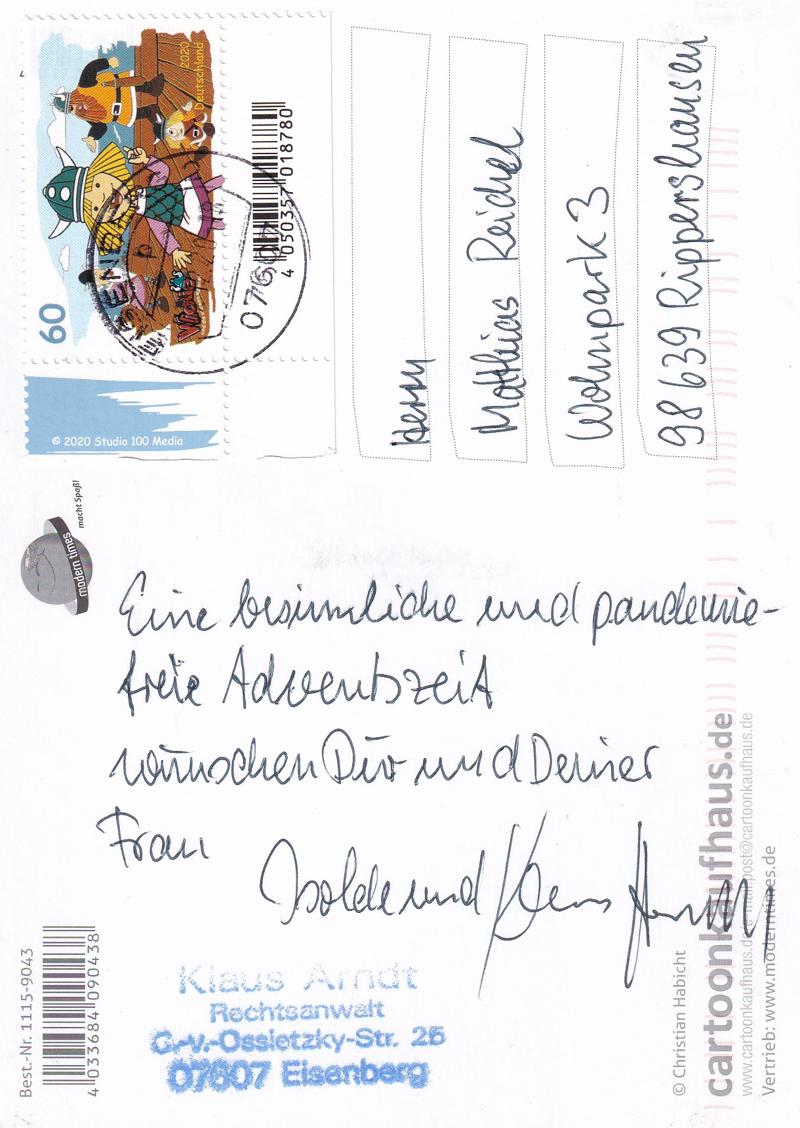 2020
Deutschland
Wickie
60
© 2020 Studio 100 Media
4 050357 018780
Herrn
Matthias Reichel
Wohnpark 3
98639 Rippershausen
modern times
macht Spaß!
Eine besinnliche und pandemie-
freie Adventszeit
wünschen Dir und Deiner
Frau
Isolde und Klaus Arndt
Klaus Arndt
Rechtsanwalt
C.-v.-Ossietzky-Str. 25
07607 Eisenberg
Best.-Nr. 1115-9043
4 033684 090438
© Christian Habicht
cartoonkaufhaus.de
www.cartoonkaufhaus.de
post@cartoonkaufhaus.de
Vertrieb: www.moderntimes.de